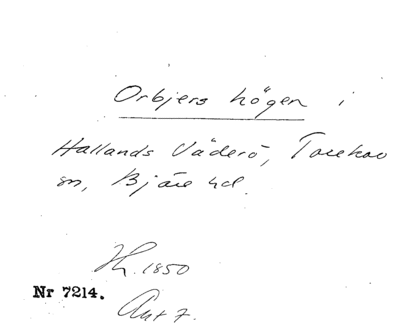 Orbjers högen i
Hallands Väderö, Torekov
sn, Bjäre hd.
H. 1850
Nr 7214.
Ant 7.